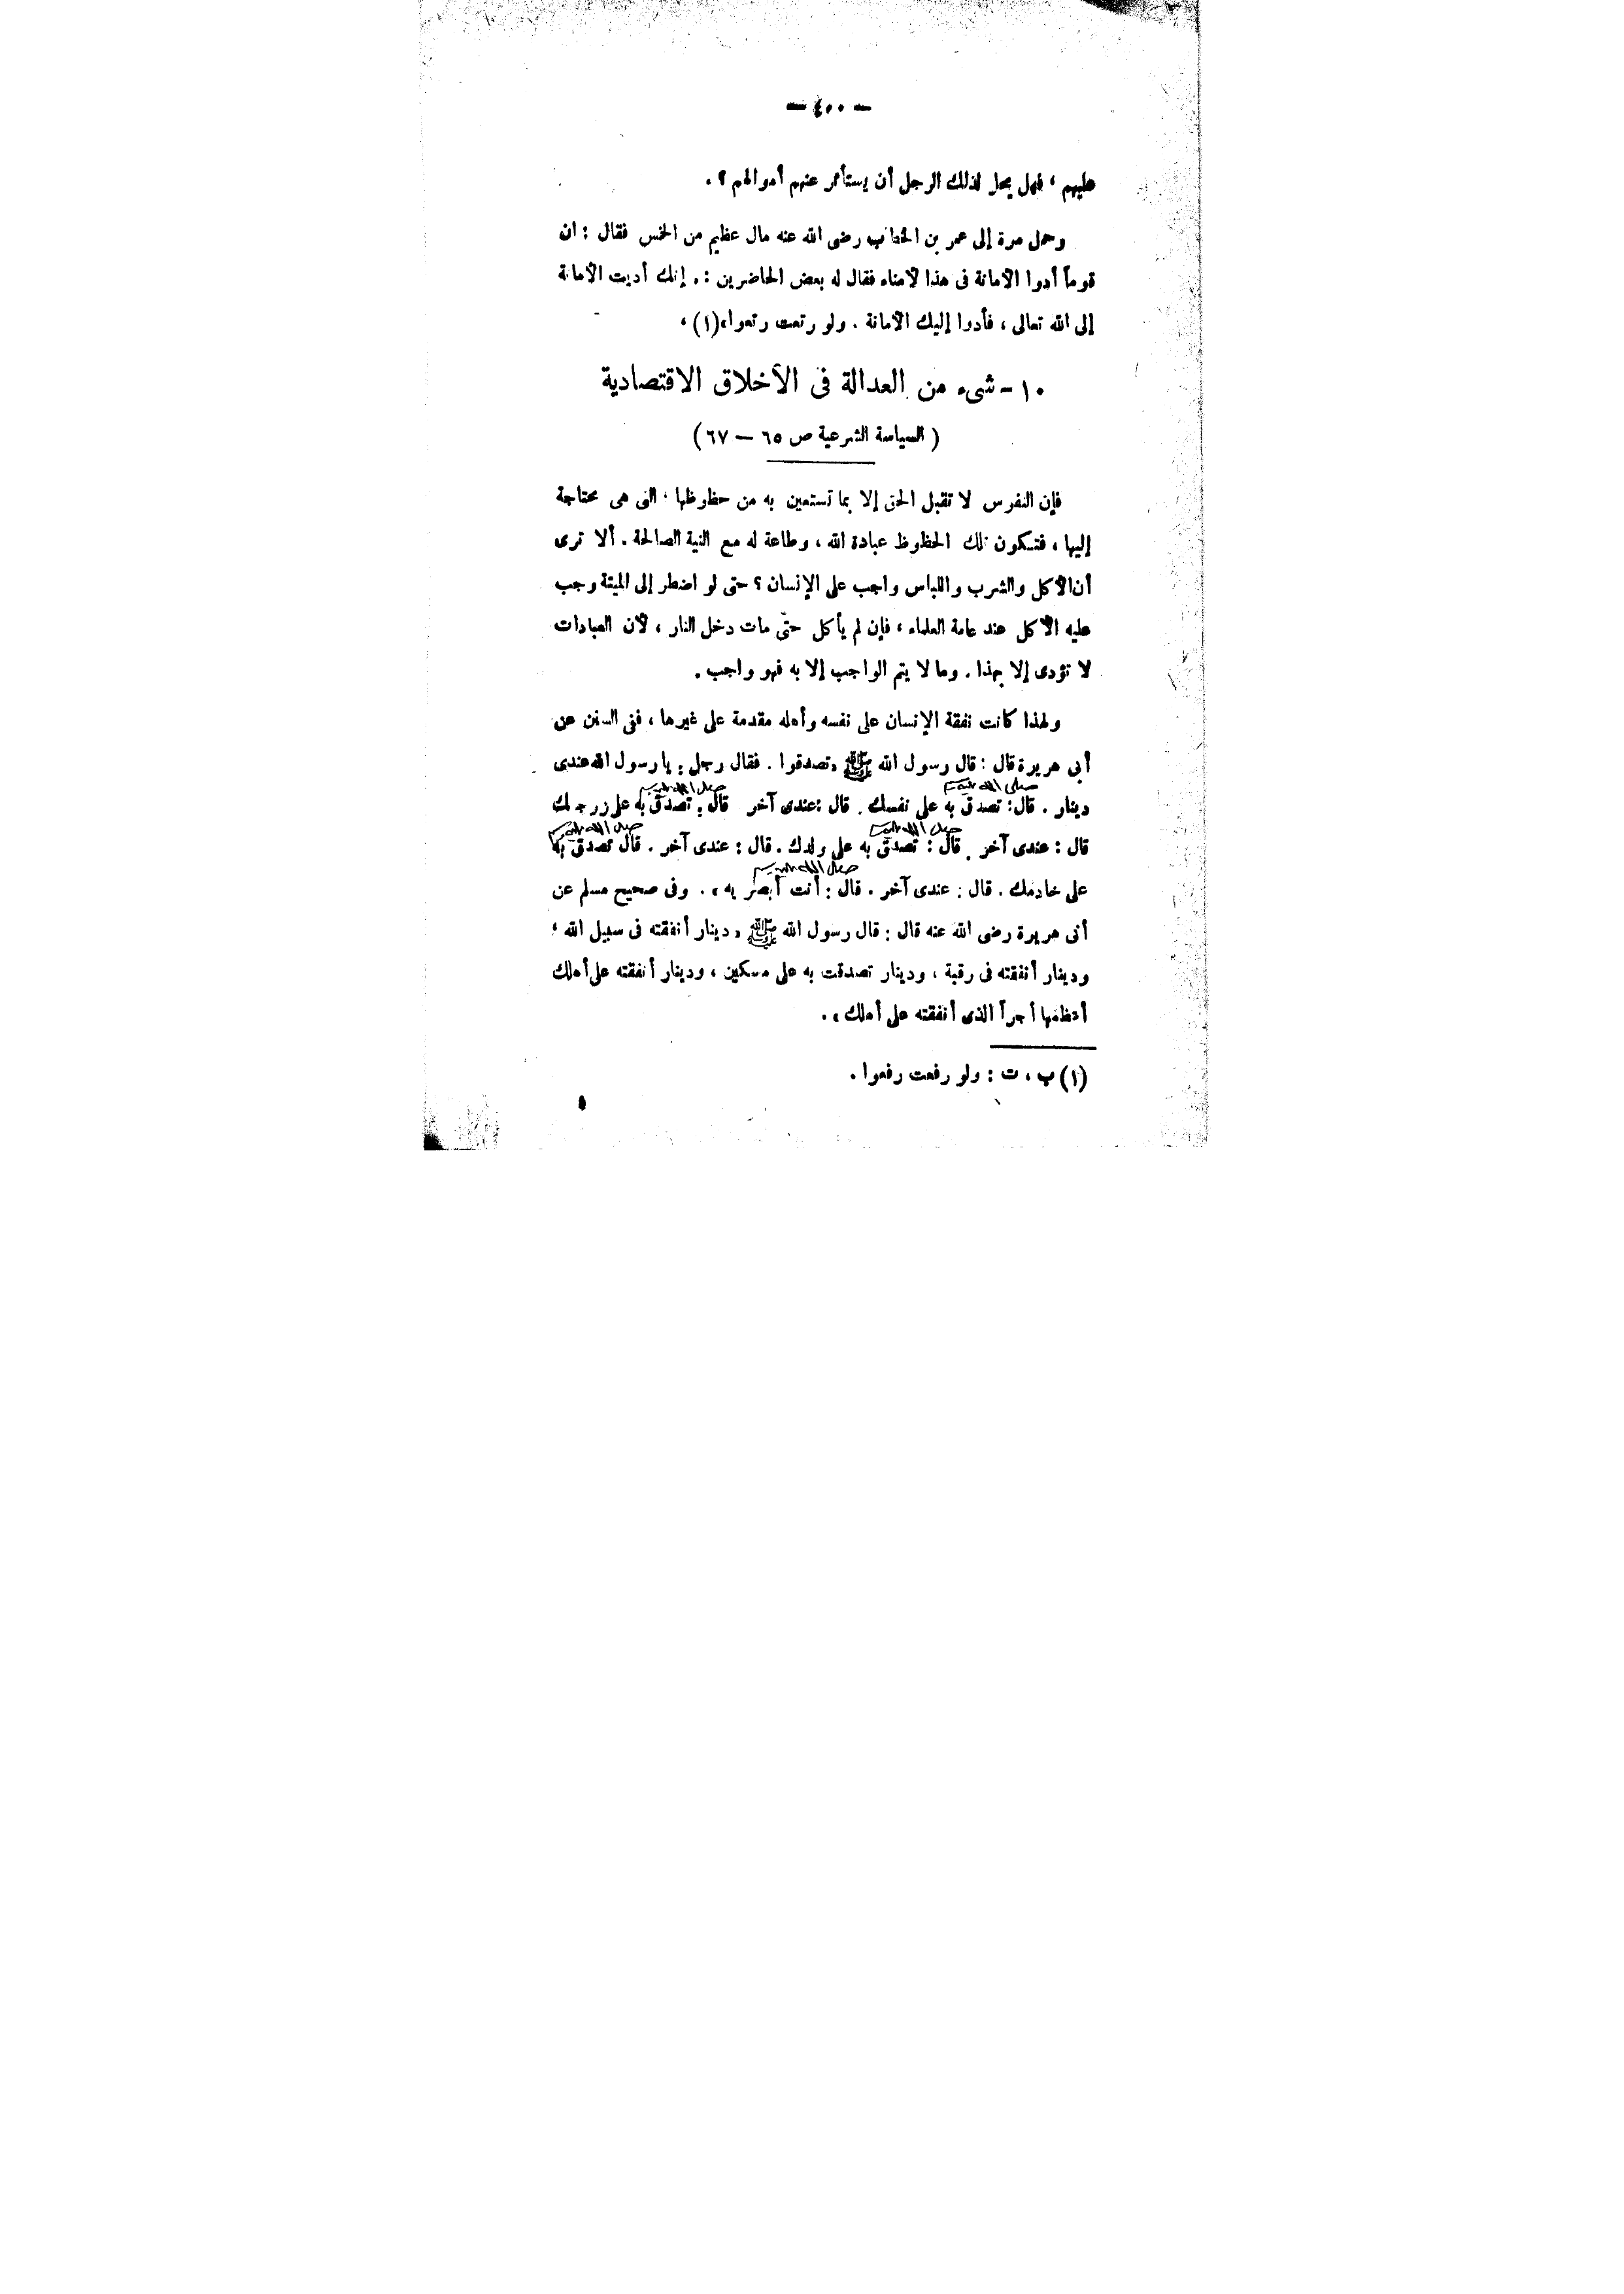 — ٤٠٠ —
عليهم ، فهل يحل لذلك الرجل أن يستأثر عنهم أموالهم ؟ .
وحمل مرة إلى عمر بن الخطاب رضى الله عنه مال عظيم من الخمس فقال : ان
قوماً أدوا الأمانة فى هذا لأمناء فقال له بعض الحاضرين : « إنك أديت الأمانة
إلى الله تعالى ، فأدوا إليك الأمانة . ولو رتعت رتعوا»(١) ،
١٠ - شىء من العدالة فى الأخلاق الاقتصادية
( السياسة الشرعية ص ٦٥ — ٦٧ )
فإن النفوس لا تقبل الحق إلا بما تستعين به من حظوظها ، التى هى محتاجة
إليها ، فتكون تلك الحظوظ عبادة الله ، وطاعة له مع النية الصالحة . ألا ترى
أن الأكل والشرب واللباس واجب على الإنسان ؟ حتى لو اضطر إلى الميتة وجب
عليه الأكل عند عامة العلماء ، فإن لم يأكل حتّى مات دخل النار ، لأن العبادات
لا تؤدى إلا بهذا . وما لا يتم الواجب إلا به فهو واجب .
ولهذا كانت نفقة الإنسان على نفسه وأهله مقدمة على غيرها ، ففى السنن عن
أبى هريرة قال : قال رسول الله ﷺ «تصدقوا . فقال رجل : يا رسول الله عندى
صلى الله عليه وسلم صلى الله عليه وسلم
دينار . قال : تصدق به على نفسك . قال : عندى آخر قال : تصدق به على زوجك
صلى الله عليه وسلم صلى الله عليه وسلم
قال : عندى آخر . قال : تصدق به على ولدك . قال : عندى آخر . قال تصدق به
صلى الله عليه وسلم
على خادمك . قال : عندى آخر . قال : أنت أبصر به » . وفى صحيح مسلم عن
أبى هريرة رضى الله عنه قال : قال رسول الله ﷺ « دينار أنفقته فى سبيل الله ،
ودينار أنفقته فى رقبة ، ودينار تصدقت به على مسكين ، ودينار أنفقته على أهلك
أعظمها أجراً الذى أنفقته على أهلك » .
(١) ب ، ت : ولو رفعت رفعوا .